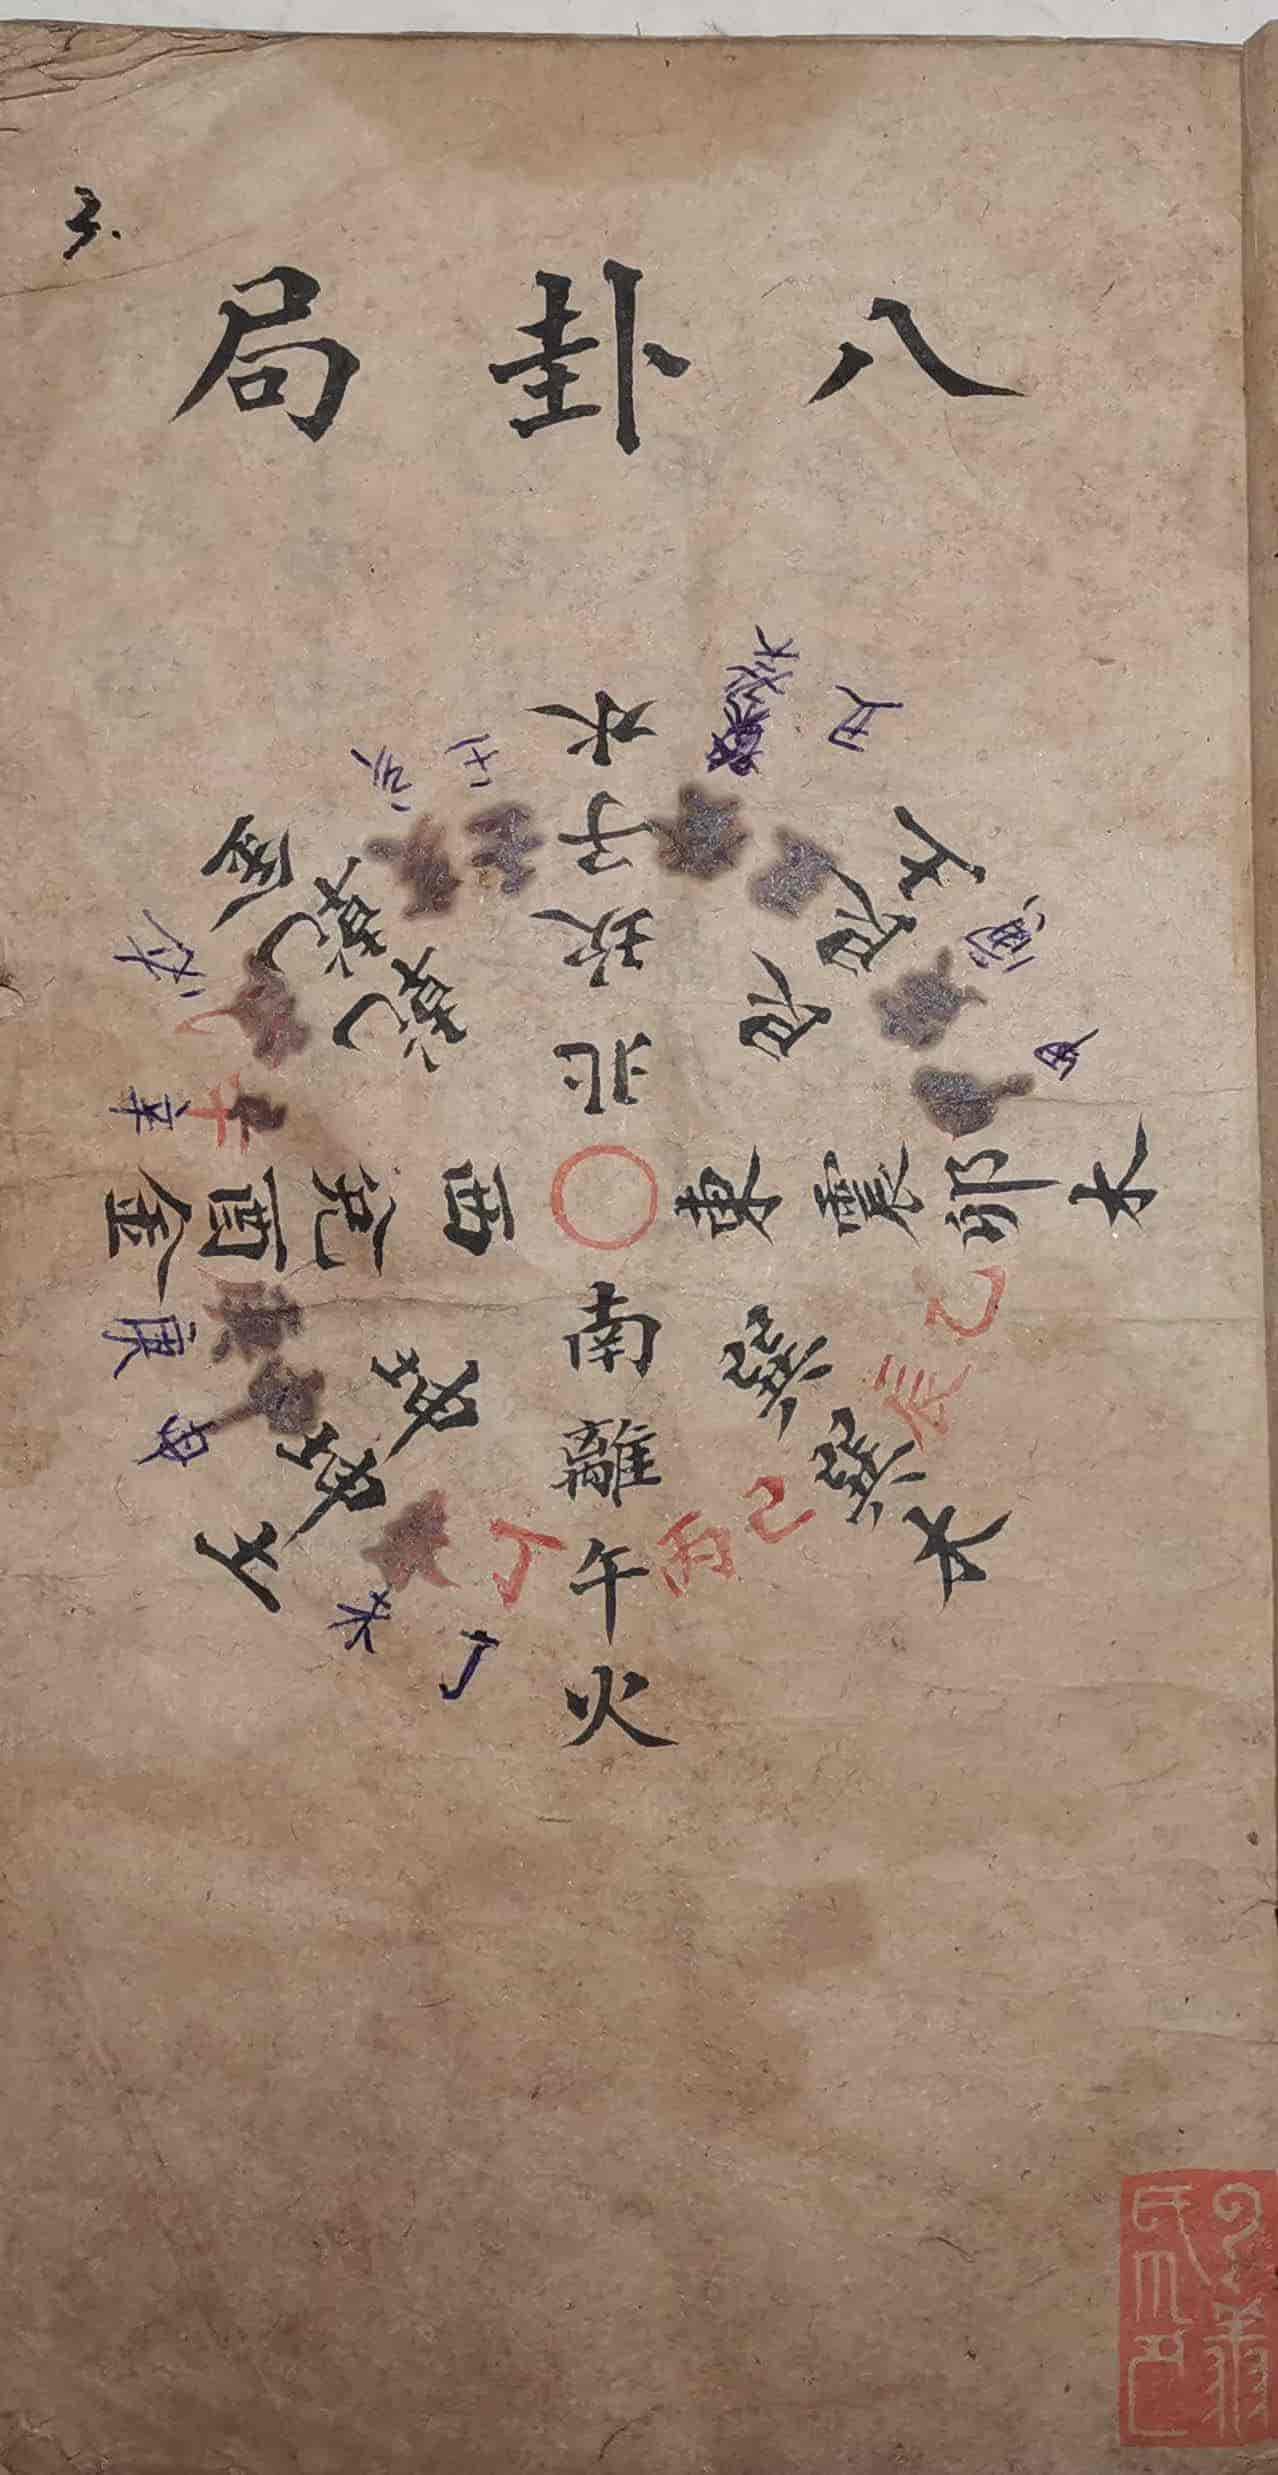 三.
八卦局
北坎子水
艮艮土
東震卯木
巽巽木
南離午火
坤坤土
西兌酉金
乾乾金
丑
寅
甲
乙
辰
巳
丙
丁
丁
未
庚
辛
亥
壬